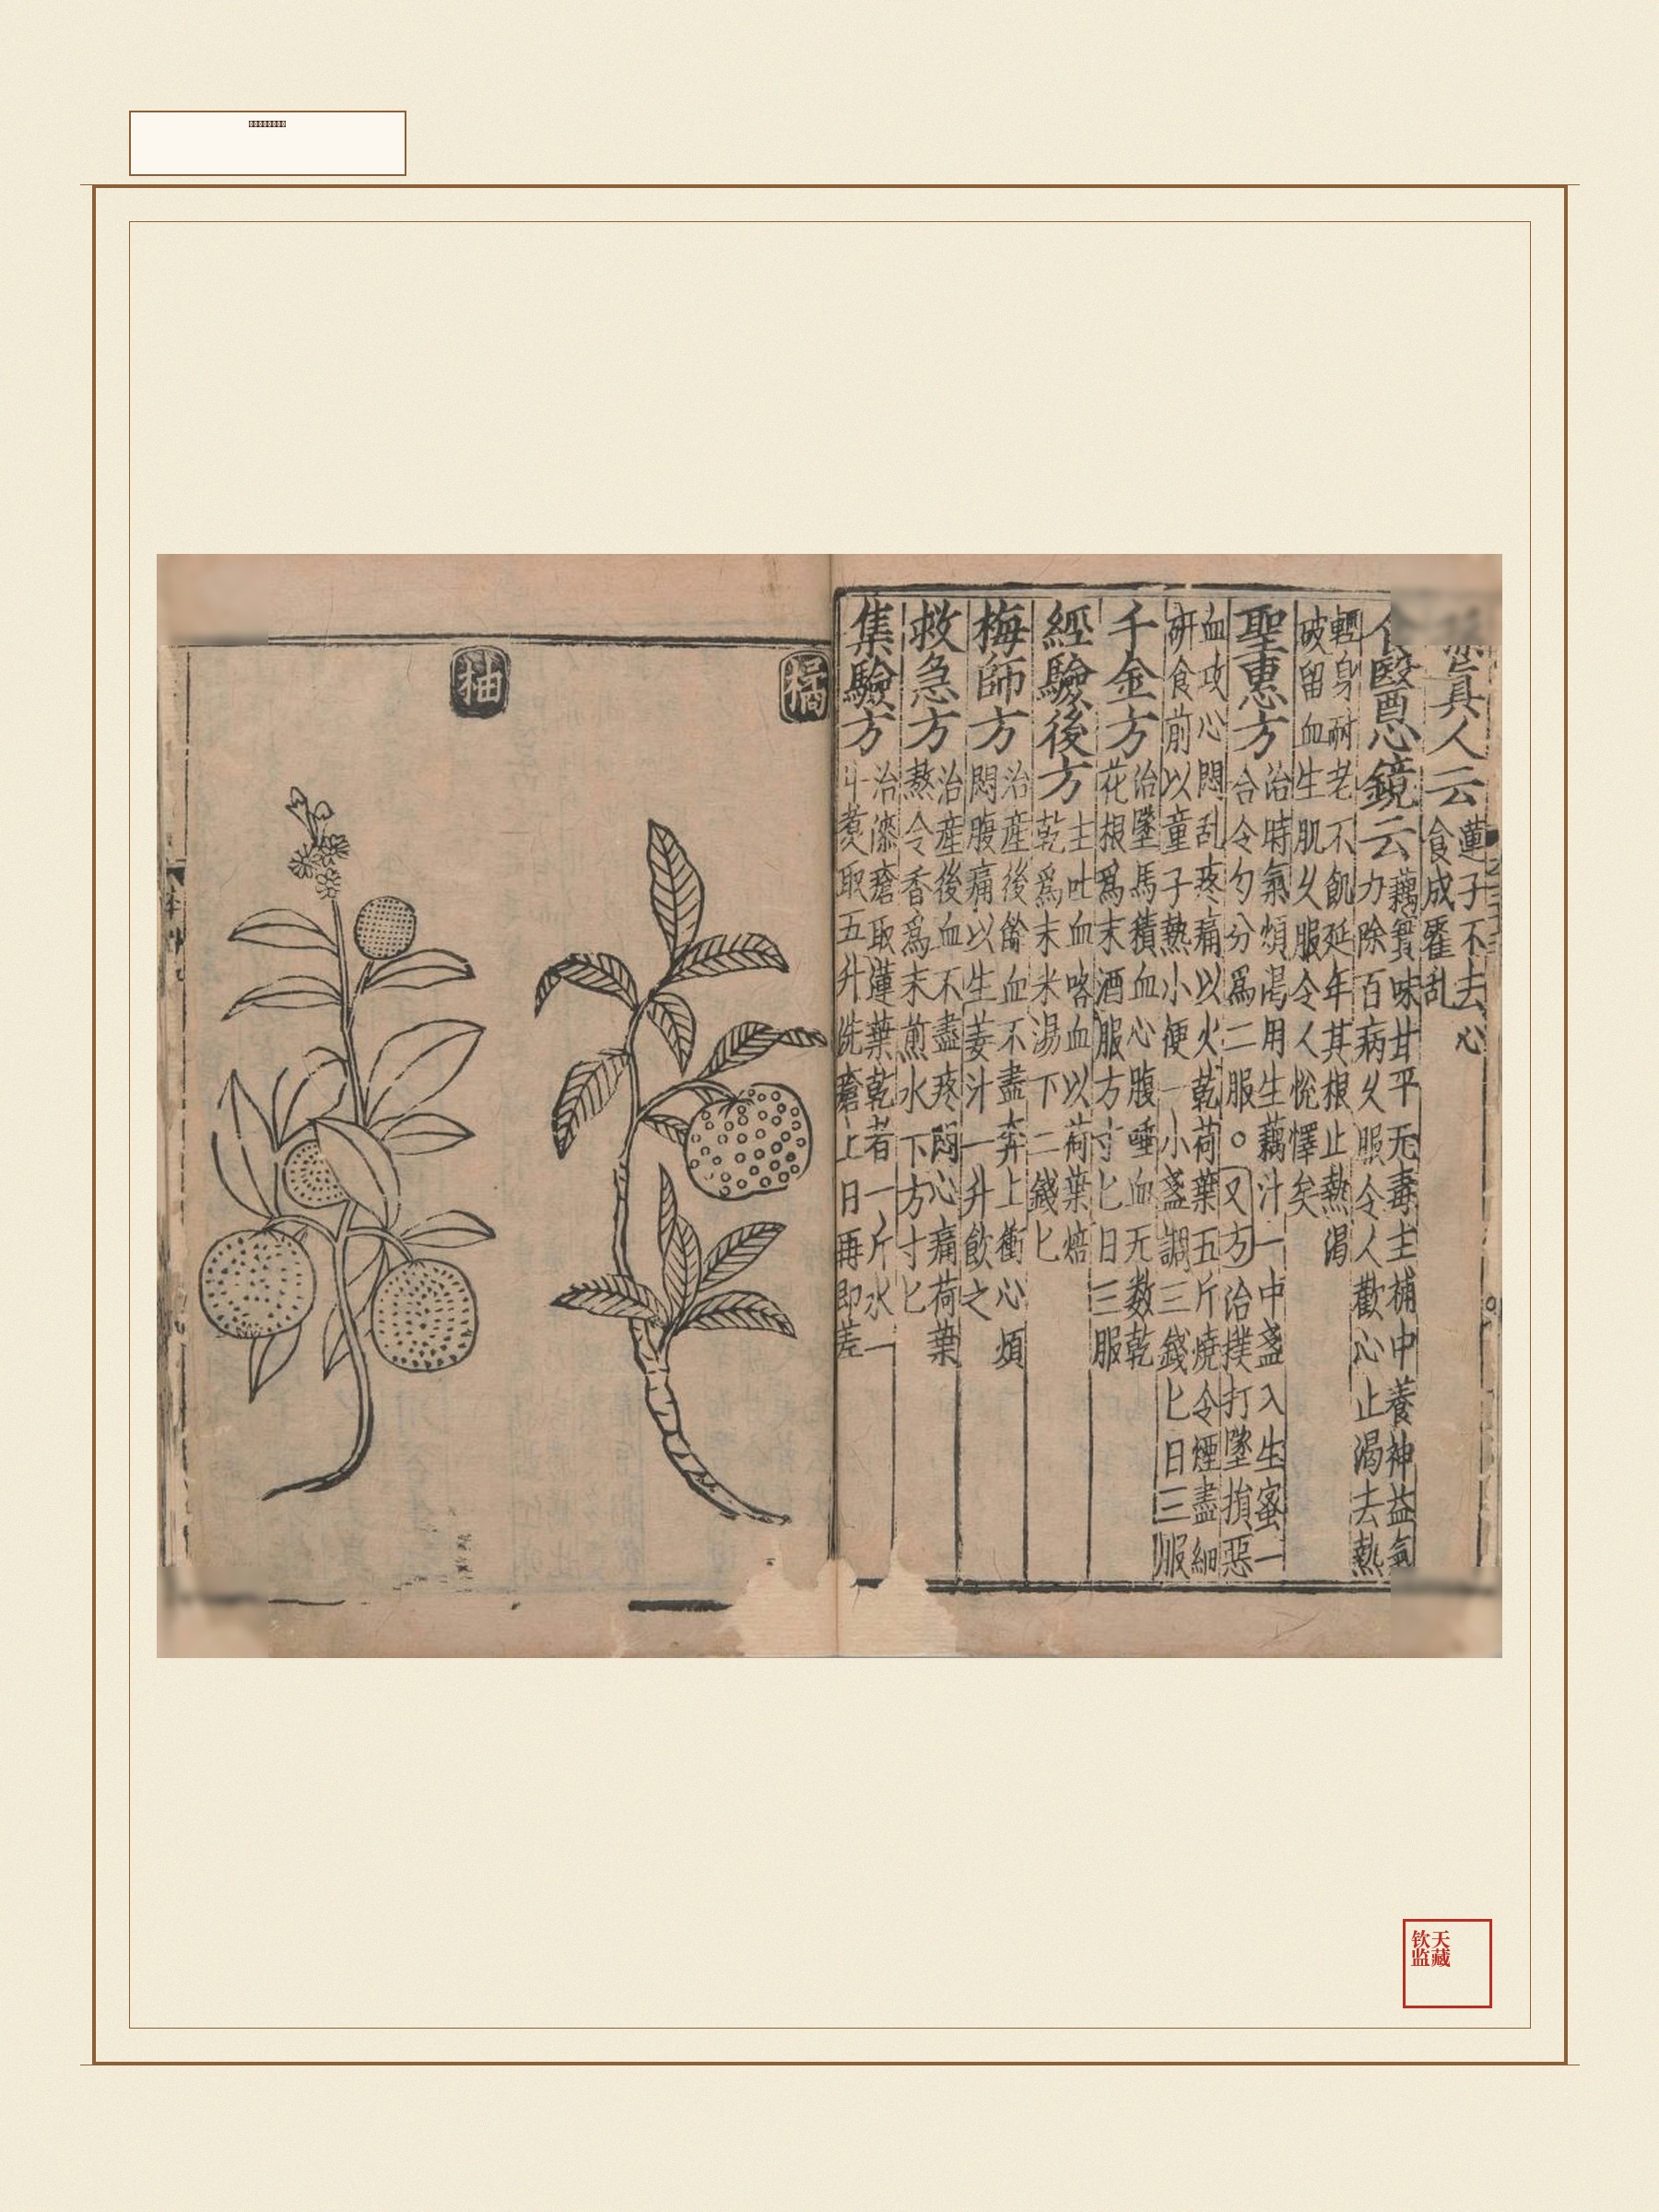 真人云蓮子不去心
食成霍乱
醫心鏡云藕實味甘平无毒主補中養神益氣
力除百病久服令人歡心止渴去熱
輕身耐老不飢延年其根止熱渴
破留血生肌久服令人悅懌矣
聖惠方治時氣煩渴用生藕汁一中盞入生蜜一
合令勻分為二服○又方治撲打墜損惡
血攻心悶乱疼痛以火乾荷葉五斤燒令煙盡細
研食前以童子熱小便一小盞調三錢匕日三服
千金方治墜馬積血心腹唾血无数乾
花根為末酒服方寸匕日三服
經驗後方主吐血咯血以荷葉焙
乾為末米湯下二錢匕
梅師方治產後餘血不盡奔上衝心煩
悶腹痛以生姜汁一升飲之
救急方治產後血不盡疼悶心痛荷葉
熬令香為末煎水下方寸匕
集驗方治漆瘡取蓮葉乾者一斤水一
斗煮取五升洗瘡上日再即差
橘
柚
本
钦天
监藏